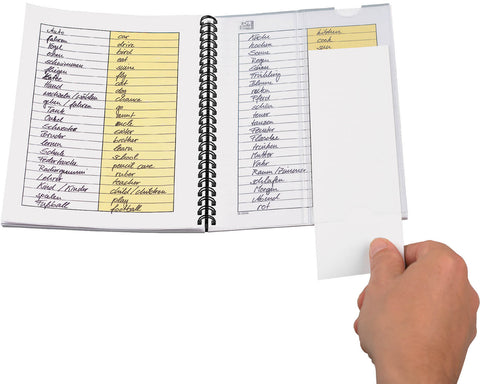 Auto car
fahren drive
Vogel bird
essen eat
schwimmen swim
fliegen fly
cat
Hund dog
wechseln/wählen chance
gehen / fahren go
Tante aunt
Onkel uncle
Schwester sister
Bruder brother
lernen learn
Schule school
Federtasche pencil case
Radiergummi ruber
Lehrer teacher
Kind / Kinder child/children
spielen play
Fußball football
Küche kitchen
kochen cook
Sonne sun
Regen
Frühling
Blume
reiten
Pferd
schön
teuer
tanzen
Fenster
Flasche
trinken
Mutter
Vater
Raum/Zimmer
schlafen
Morgen
Abend
rot